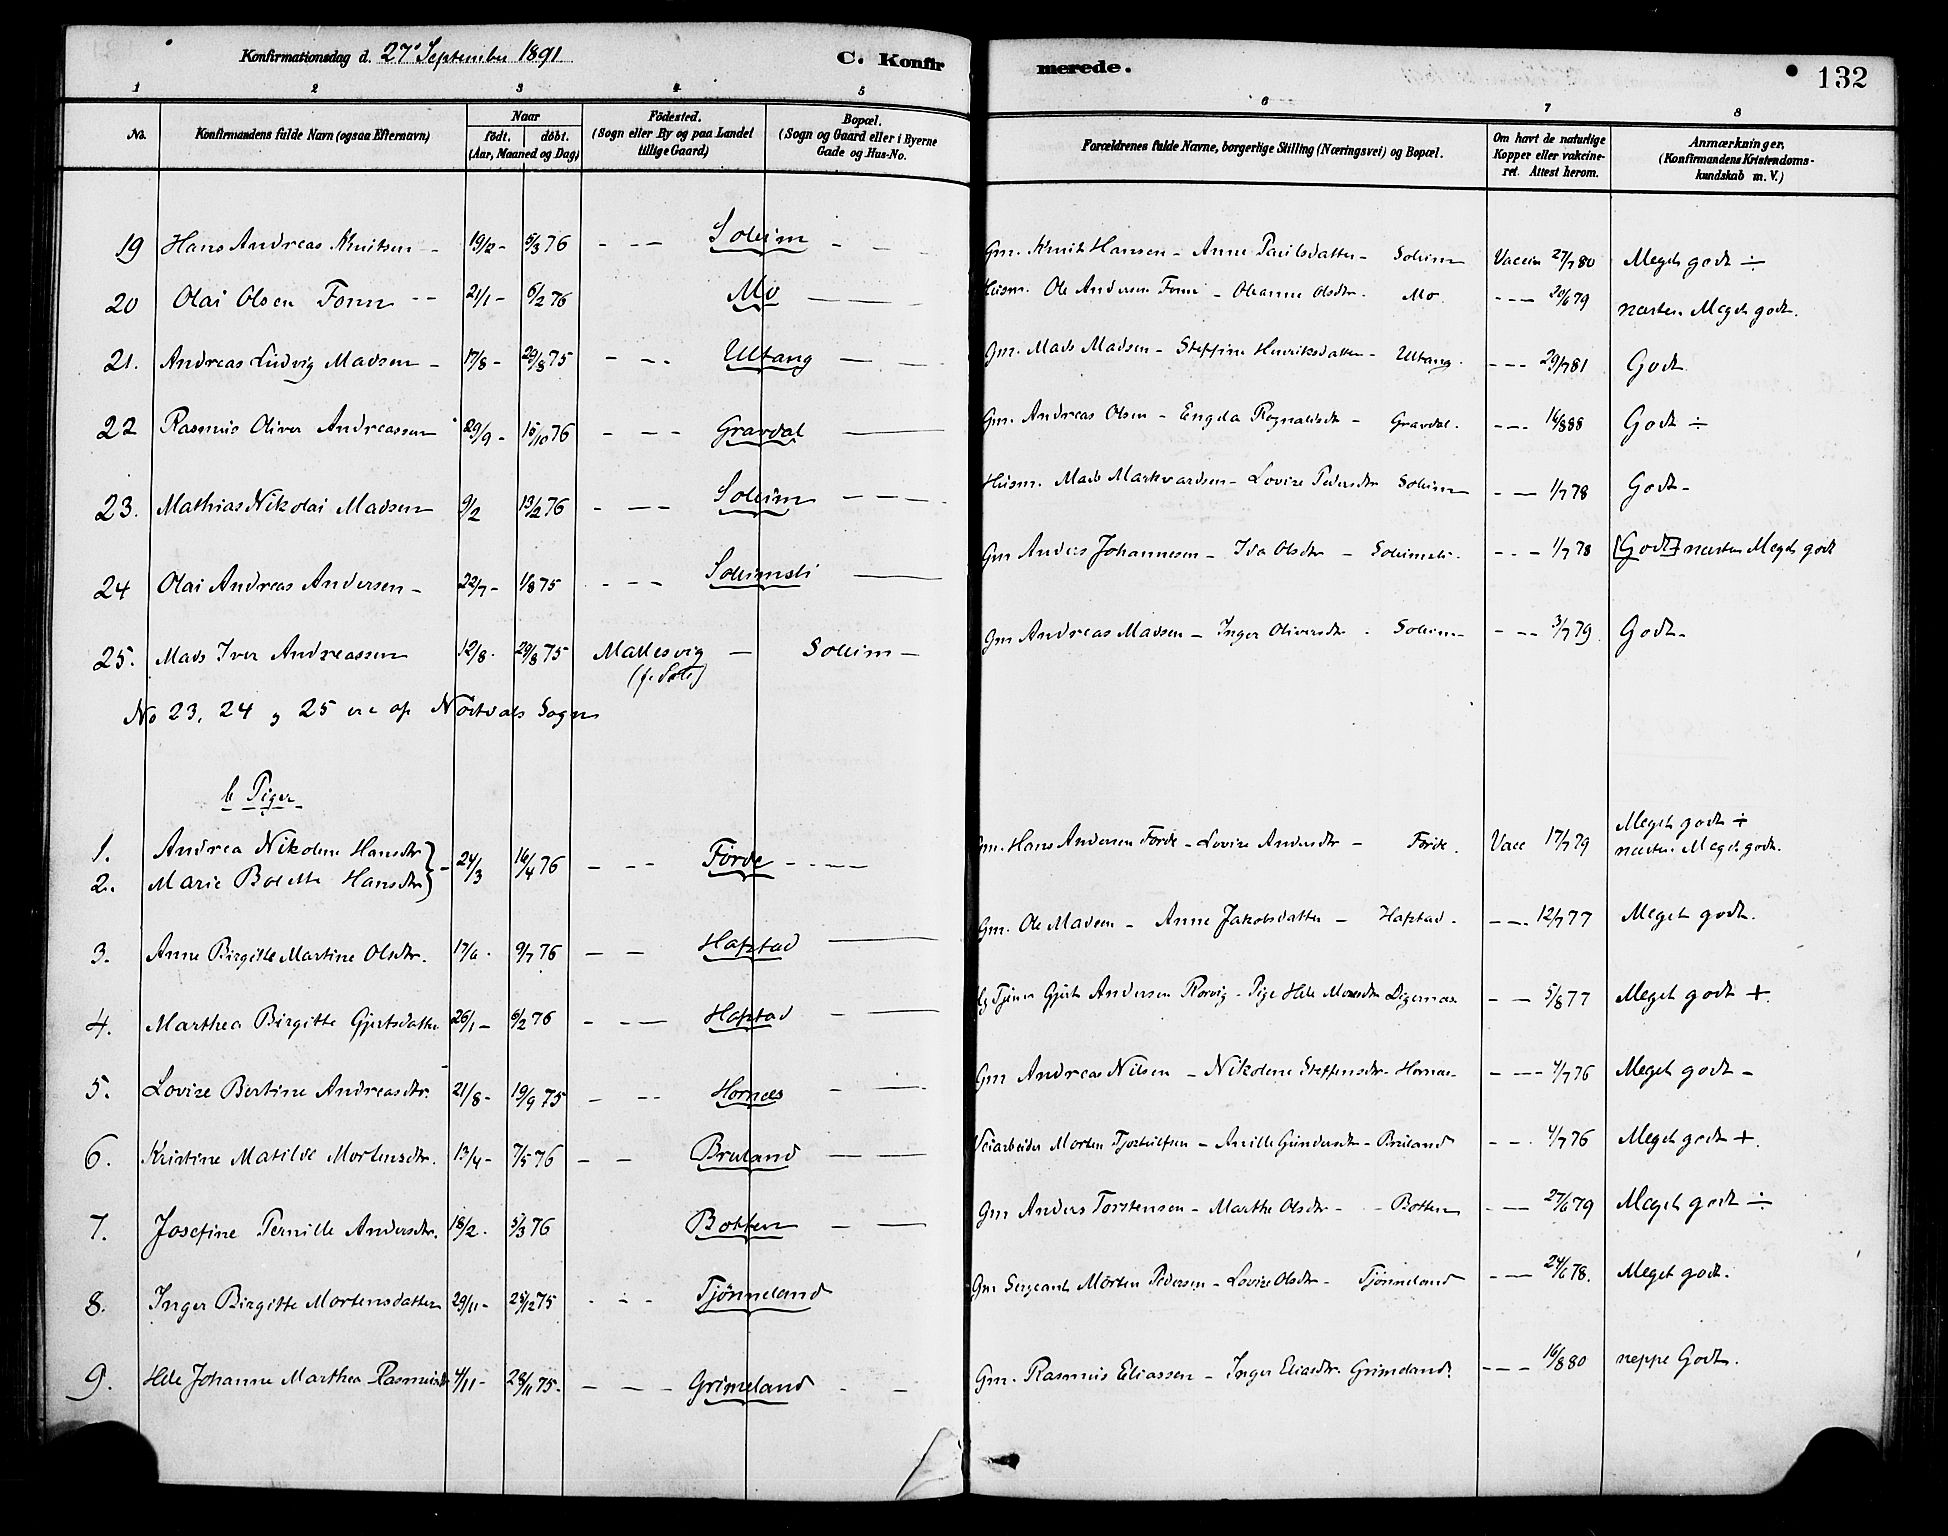 Konfirmationsdag d. 27de September 1891.
C. Konfirmerede.
132
1 2 3 4 5 6 7 8
No. Konfirmandens fulde Navn (ogsaa Efternavn) Naar født. døbt. (Aar, Maaned og Dag) Fødested. (Sogn eller By og paa Landet tillige Gaard) Bopæl. (Sogn og Gaard eller i Byerne Gade og Hus-No. Forældrenes fulde Navne, borgerlige Stilling (Næringsvei) og Bopæl. Om havt de naturlige Kopper eller vakcineret. Attest herom. Anmærkninger. (Konfirmandens Kristendomskundskab m. V.)
19 Hans Andreas Knutsen - 19/2 - 5/3 76 - - - Soleim - - Gm. Knut Hansen - Anne Paulsdatter - Soleim Vaccin 27/7 80 Meget godt ÷
20 Olai Olsen Fonn - - 21/1 - 6/2 76 Mo - - - Husm. Ole Andersen Fonn - Oleanne Olsdtr. Mo. - - - 20/6 79 næsten Meget godt.
21. Andreas Ludvig Madsen - 17/8 - 29/8 75 - - - Ultang - - Gm. Mads Madsen - Steffine Henriksdatter - Ultang. - - - 29/7 81 Godt.
22 Rasmus Oliver Andreassen 29/9 - 15/10 76 - - - Gravdal - Gm. Andreas Olsen - Engela Rognaldsdtr - Gravdal. - - - 16/8 88 Godt ÷
23. Mathias Nikolai Madsen 9/2 13/2 76 - - - Soleim - - - Husm. Mads Markvardsen - Lovise Pedersdtr Soleim - - 1/7 78 Godt -
24 Olai Andreas Andersen - 22/7 - 1/8 75 - - - Soleimsli - Gm Anders Johannesen - Ida Olsdtr - Soleimsli. - - - 1/7 78 [Godt] næsten Meget godt
25. Mads Iver Andreassen 12/8. 29/8 75 Mallesvig - (f. Sole) Soleim - Gm Andreas Madsen - Inger Oliversdtr - Soleim - - - 3/7 79. Godt -
No 23, 24 og 25 ere af Nostdals Sogn
b Piger
1. Andrea Nikoline Hansdtr } - 24/3 16/4 76 - - - Förde - - - - Gm. Hans Andersen Förde - Lovise Andersdtr - Förde. Vacc 17/7 79 Meget godt ÷
2. Marie Bolette Hansdtr } næsten Meget godt.
3. Anne Birgitte Martine Olsdtr. 17/6. 9/7 76 - - Hafstad - Gm. Ole Madsen - Anne Jakobsdatter - Hafstad - - - - 12/7 77 Meget godt.
4. Marthea Birgitte Gjertsdatter 26/1 - 6/2 76 - - - Hafstad - - Gjert Andersen Rorvig - Pige - - 5/8 77 Meget godt +.
5. Lovise Bertine Andreasdtr. 21/8 - 19/9 75 - - - Hornæs - - Gm Andreas Nilsen - Nikoline Steffensdtr - Hornæs - - - - 4/7 76 Meget godt -
6. Kristine Matilde Mortensdtr. 13/4 - 7/5 76 - - Bruland - - Veiarbeider Morten - Gundersdtr - Bruland - - . 4/7 76 Meget godt +.
7. Josefine Pernille Andersdtr. 18/2. 5/3 76 Botten - - Gm Anders Torstensen - Marthe Olsdtr - - Botten - - 27/6 79 Meget godt ÷
8. Inger Birgitte Mortensdatter 29/11 - 25/12 75 - - - Tjönneland Gm Sergeant Morten Pedersen - Lovise Olsdtr - Tjönneland - - 24/6 78. Meget godt.
9. Hele Johanne Marthea Rasmusdtr 4/11 - 28/11 75. - - - Grimeland - - Gm. Rasmus Eliassen - Inger Eliasdtr. Grimeland. - - - 16/8 80 neppe Godt.